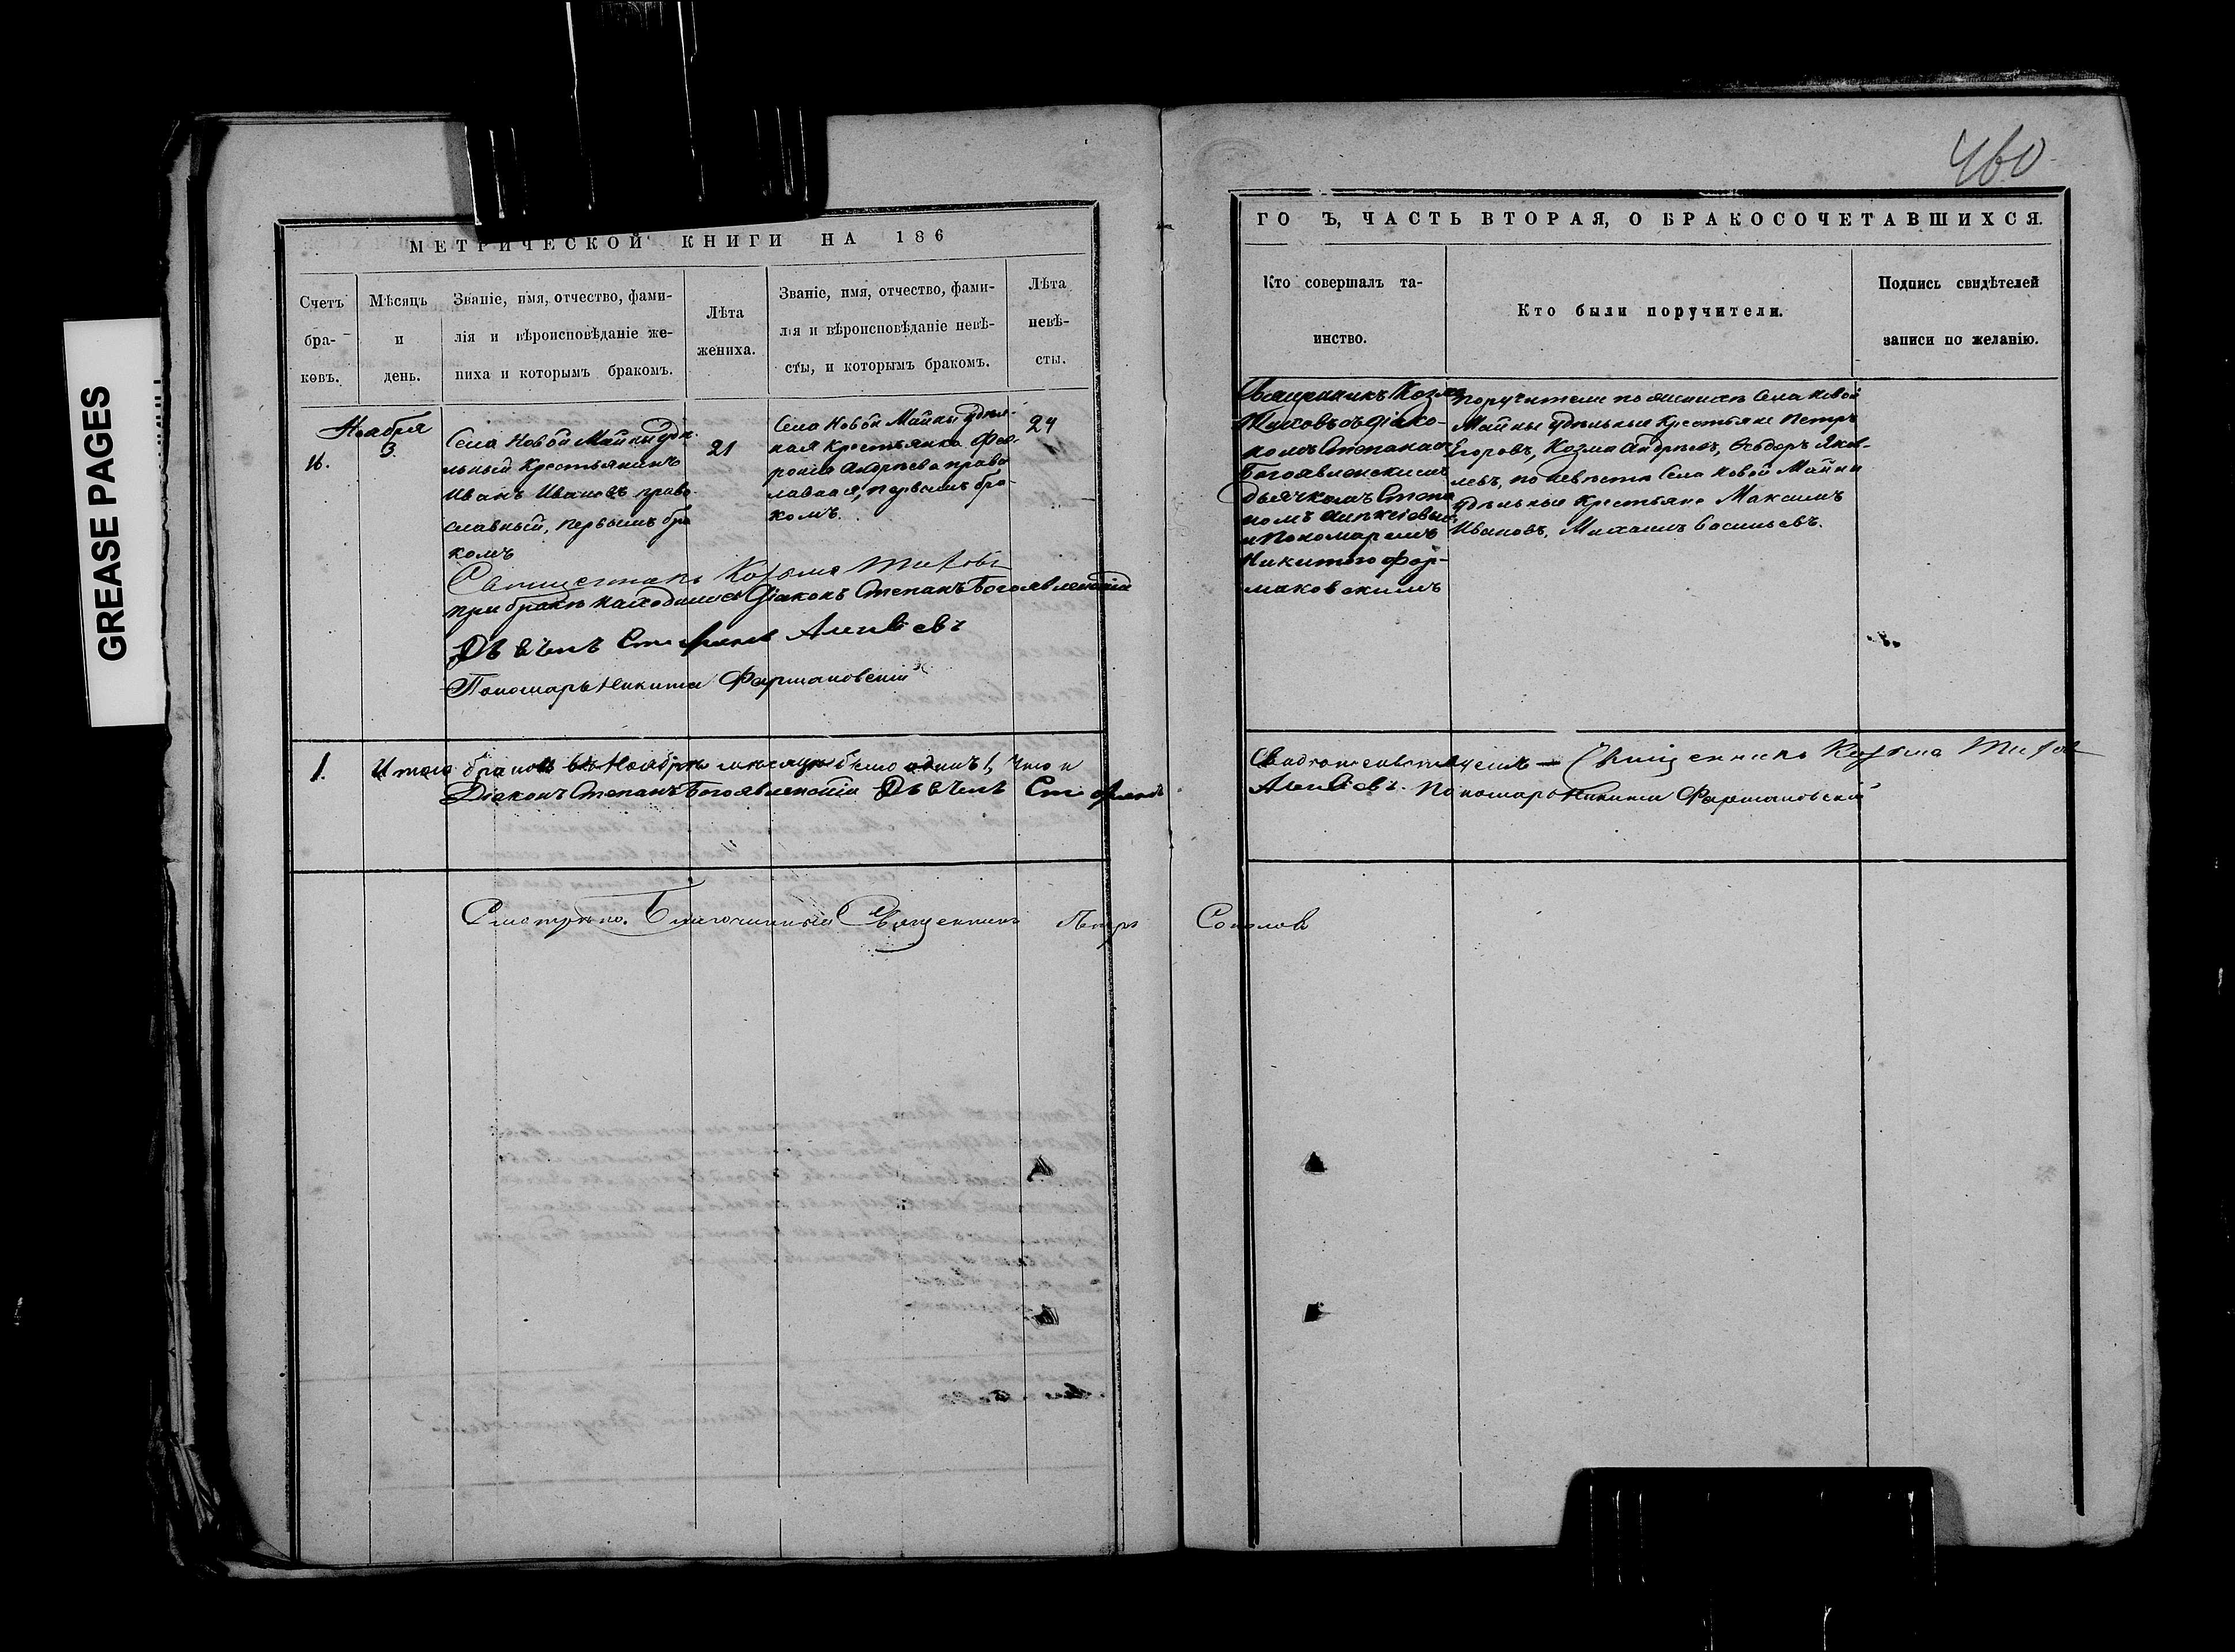 GREASE PAGES
460
МЕТРИЧЕСКОЙ КНИГИ НА 186
Счетъ бра-ковъ.
Мѣсяцъ и день.
Званіе, имя, отчество, фами-
лія и вѣроисповѣданіе же-
ниха и которымъ бракомъ.
Лѣта жениха.
Званіе, имя, отчество, фами-
лія и вѣроисповѣданіе невѣ-
сты, и которымъ бракомъ.
Лѣта невѣ-сты.
Ноабря
16.
3.
Села Новой Майны удѣ-
льный Крестьянинъ
Иванъ Ивановъ право
славный, первымъ бра
комъ
21
Села Новой Майны удѣль-
ная Крестьянка Фев-
рониа Андрѣева право
лавная, первымъ бра-
комъ.
24
Священникъ Козьма Тиховъ
при бракѣ находился Діаконъ Степанъ Богоявленскій
Дьячекъ Стефанъ Алексѣевъ
Пономарь Никита Формаковскій
1.
Итого браковъ въ Ноябрѣ мѣсяцѣ было одинъ 1, что и
Діаконъ Степанъ Богоявленскій Дьячекъ Стефанъ
Смотрѣно. Благочинный Священникъ Петръ Соколовъ
ГО Ъ, ЧАСТЬ ВТОРАЯ, О БРАКОСОЧЕТАВШИХСЯ.
Кто совершалъ та-
инство.
Кто были поручители.
Подпись свидѣтелей
записи по желанію.
Священникъ Козма
Тиховъ съ діако-
номъ Степаномъ
Богоявленскимъ
дьячкомъ Степа
номъ Алексіевымъ
и Пономаремъ
Никитою Фор-
маковскимъ
Поручители по женихѣ Села Новой
Майны удѣльные Крестьяне Петръ
Егоровъ, Козма Андрѣевъ, Ѳедоръ Яков-
левъ, по невѣстѣ Села Новой Майны
удѣльные Крестьяне Максимъ
Ивановъ, Михаилъ Васильевъ.
Свидѣтельствуемъ — Священникъ Козьма Тиховъ
Алексѣевъ. Пономарь Никита Формаковскій